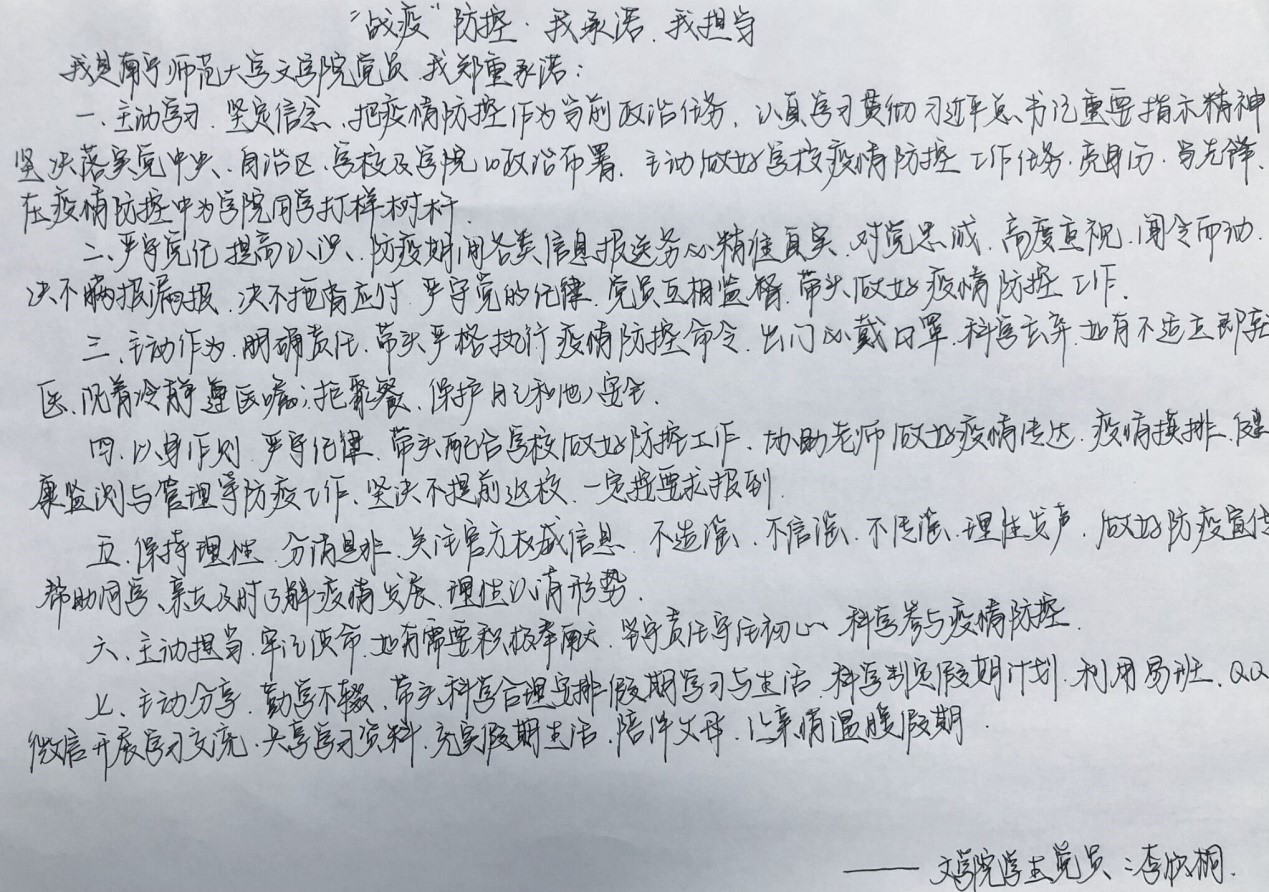 “战疫”防控·我承诺、我担当
我是南宁师范大学文学院党员，我郑重承诺：
一、主动学习、坚定信念、把疫情防控作为当前政治任务，认真学习贯彻习近平总书记重要指示精神
坚决落实党中央、自治区、学校及学院的政治布署，主动做好学校疫情防控工作任务，亮身份，当先锋，
在疫情防控中为学院同学打样树杆。
二、严守党纪，提高认识、防疫期间各类信息报送务必精准真实，对党忠诚、高度重视、闻令而动，
决不瞒报漏报，决不拖沓应付，严守党的纪律，党员互相监督，带头做好疫情防控工作。
三、主动作为、明确责任、带头严格执行疫情防控命令，出门必戴口罩，科学 如有不适立即
医，沉着冷静遵医嘱；拒聚餐，保护自己和他人安全。
四、以身作则，严守纪律，带头配合学校做好防控工作，协助老师做好疫情传达、疫情摸排、健
康监测与管理等防疫工作，坚决不提前返校，一定按要求报到。
五、保持理性，分清是非，关注官方权威信息，不造谣、不信谣、不传谣，理性发声，做好防疫宣传
帮助同学、亲友及时了解疫情发展，理性认清形势。
六、主动担当，牢记使命，如有需要积极奉献，坚守责任守住初心，科学参与疫情防控。
七、主动分享，勤学不辍，带头科学合理安排假期学习与生活，科学制定假期计划，利用易班、QQ
微信开展学习交流，共享学习资料，充实假期生活，陪伴父母，让亲情温暖假期。
——文学院学生党员：李欣桐